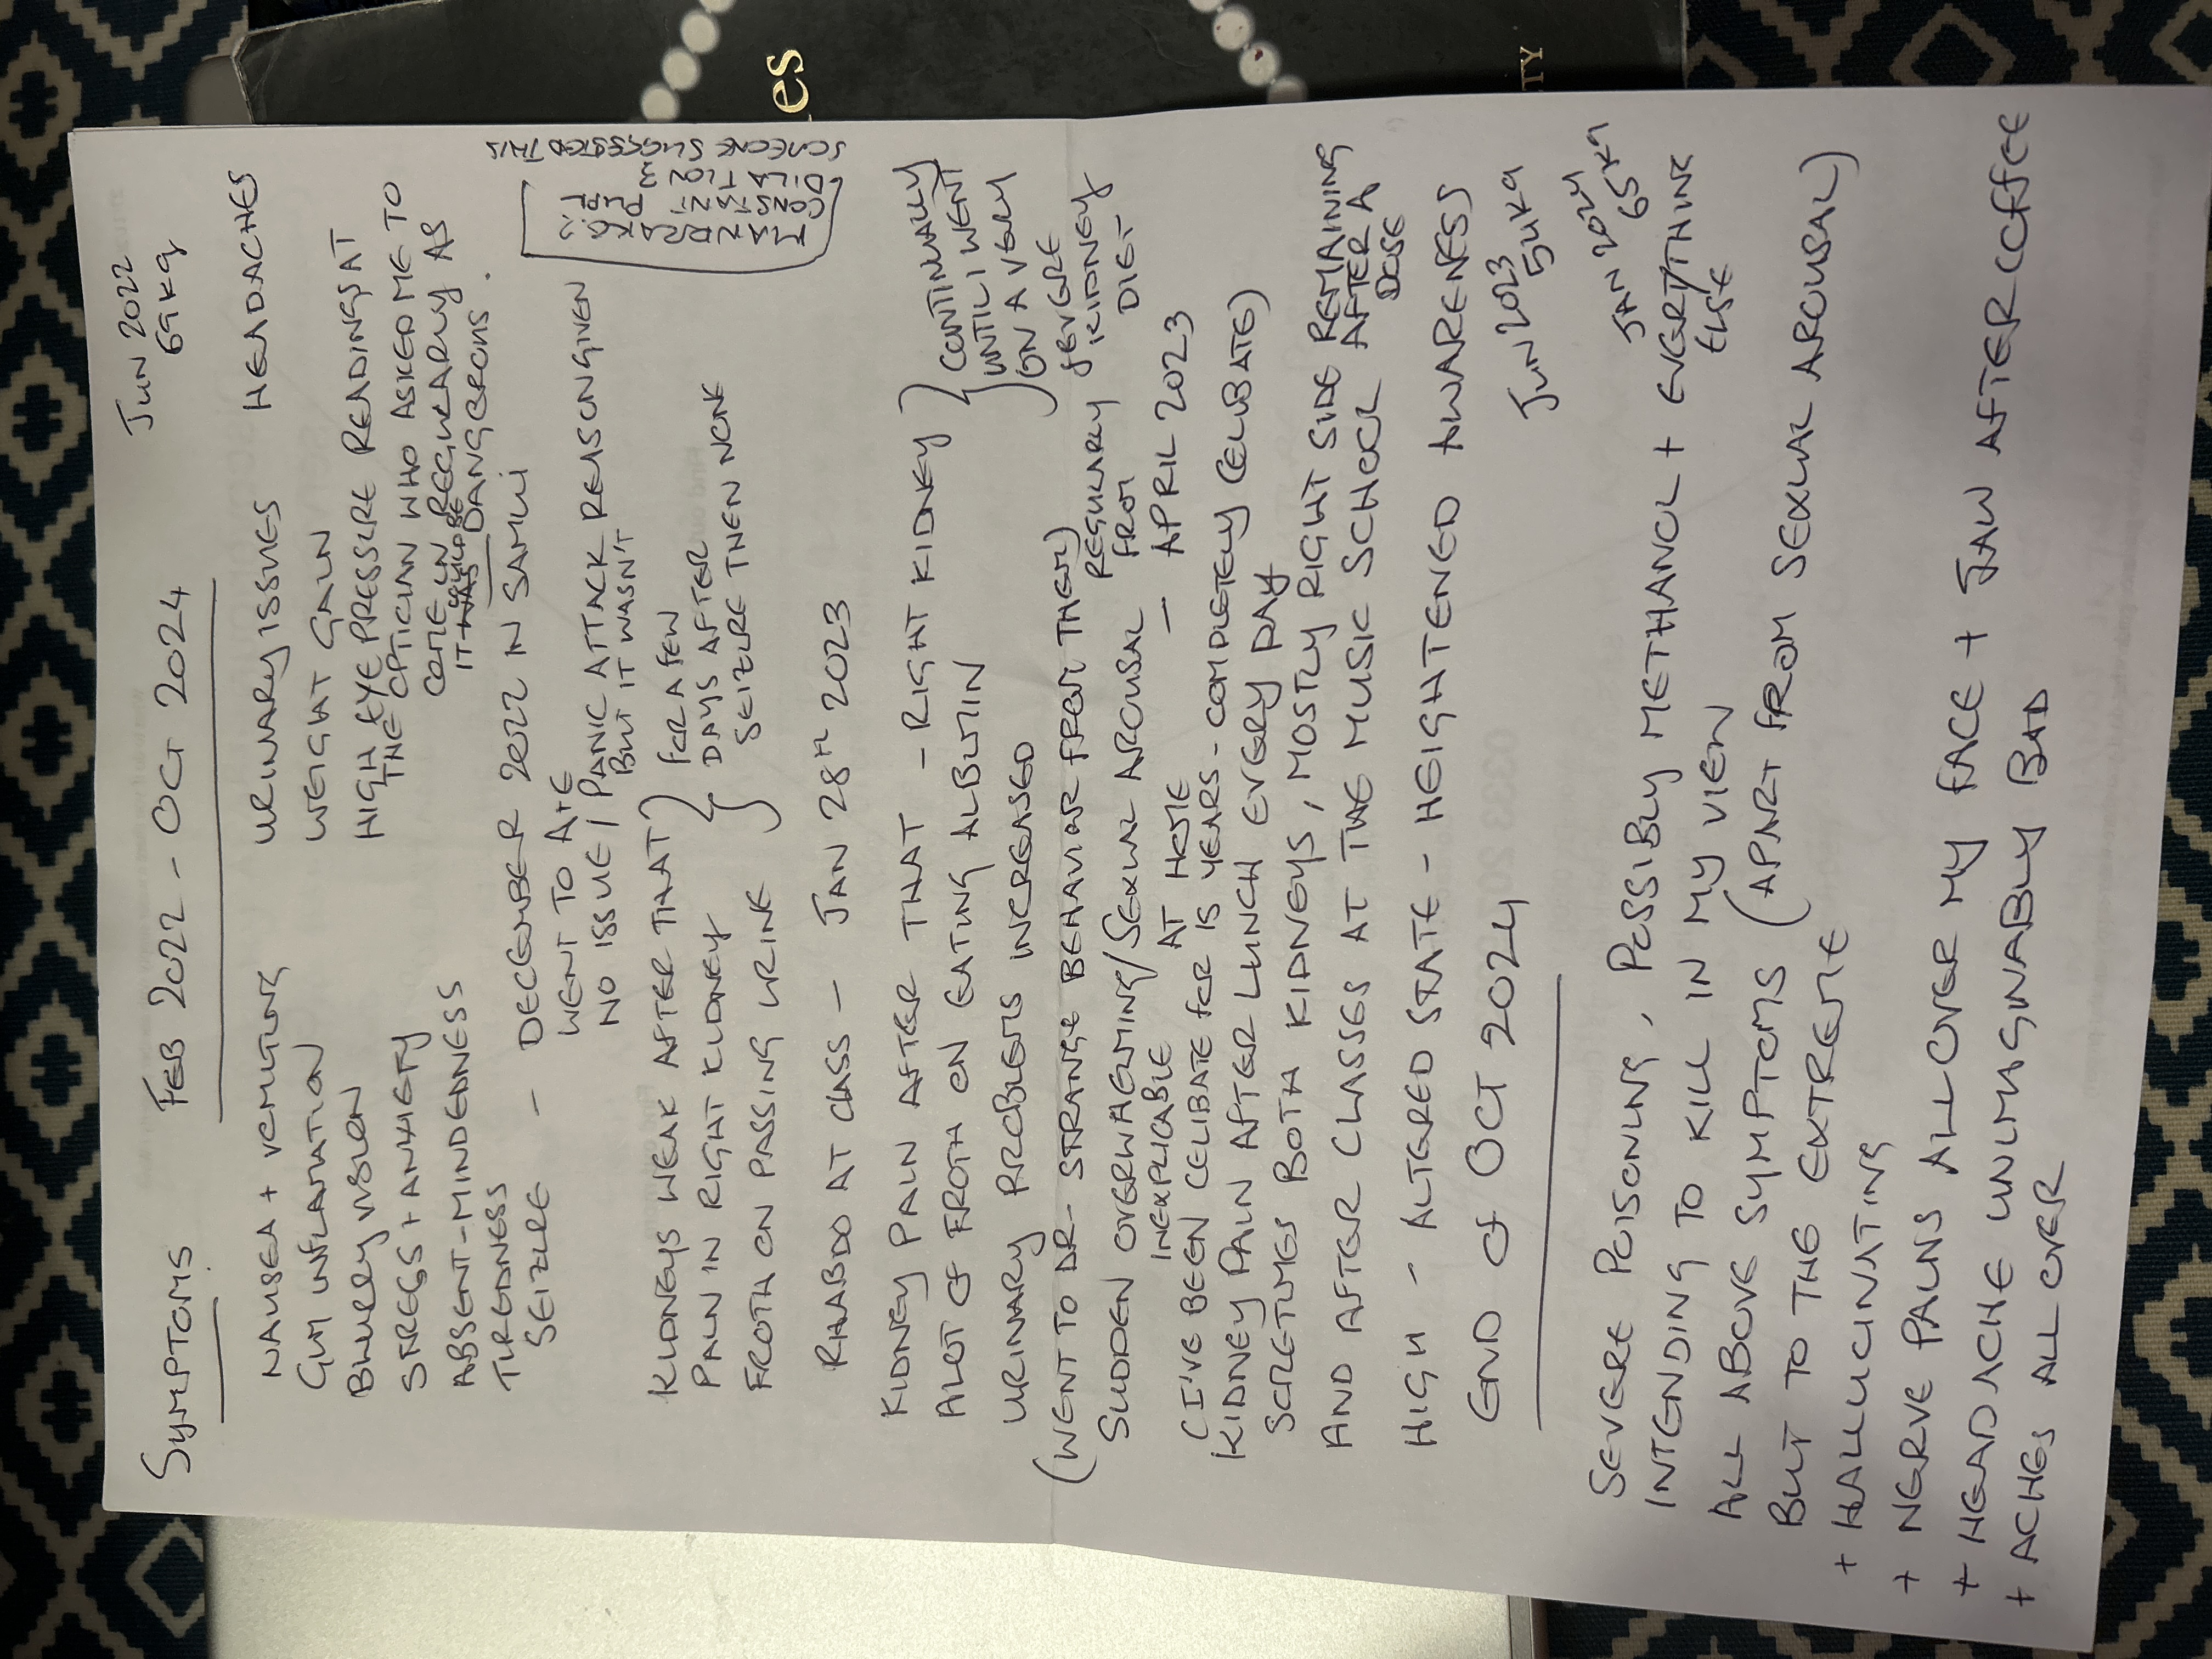 SYMPTOMS FEB 2022 - OCT 2024
JUN 2022
69kg
NAUSEA + VOMITING
GUM INFLAMATION
BLURRY VISION
STRESS + ANXIETY
ABSENT-MINDEDNESS
TIREDNESS
URINARY ISSUES
HEADACHES
WEIGHT GAIN
HIGH EYE PRESSURE READINGS AT
THE OPTICIAN WHO ASKED ME TO
COME IN REGULARLY AS
IT WAS COULD BE DANGEROUS.
SEIZURE - DECEMBER 2022 IN SAMUI
WENT TO A+E
NO ISSUE / PANIC ATTACK REASON GIVEN
BUT IT WASN'T
MANDRAKE?
CONSTANT PUPIL
DILATION?
SOMEONE SUGGESTED THIS
KIDNEYS WEAK AFTER THAT
PAIN IN RIGHT KIDNEY
FROTH ON PASSING URINE
FOR A FEW
DAYS AFTER
SEIZURE THEN NONE
RHABDO AT CLASS - JAN 28TH 2023
KIDNEY PAIN AFTER THAT - RIGHT KIDNEY
ALOT OF FROTH ON EATING ALBUMIN
URINARY PROBLEMS INCREASED
CONTINUALLY
UNTIL I WENT
ON A VERY
SEVERE
KIDNEY
DIET
(WENT TO DR - STRANGE BEHAVIOR FROM THEM)
SUDDEN OVERWHELMING/SEXUAL AROUSAL
INEXPLICABLE AT HOME -
REGULARLY
FROM
APRIL 2023
(I'VE BEEN CELIBATE FOR 15 YEARS - COMPLETELY CELIBATE)
KIDNEY PAIN AFTER LUNCH EVERY DAY
SOMETIMES BOTH KIDNEYS, MOSTLY RIGHT SIDE REMAINING
AFTER A
DOSE
AND AFTER CLASSES AT THE MUSIC SCHOOL
HIGH - ALTERED STATE - HEIGHTENED AWARENESS
END OF OCT 2024
JUN 2023
54kg
JAN 2024
65kg
SEVERE POISONING, POSSIBLY METHANOL + EVERYTHING
ELSE
INTENDING TO KILL IN MY VIEW
ALL ABOVE SYMPTOMS (APART FROM SEXUAL AROUSAL)
BUT TO THE EXTREME
+ HALLUCINATING
+ NERVE PAINS ALL OVER MY FACE + JAW AFTER COFFEE
+ HEADACHE UNIMAGINABLY BAD
+ ACHES ALL OVER
es
TY